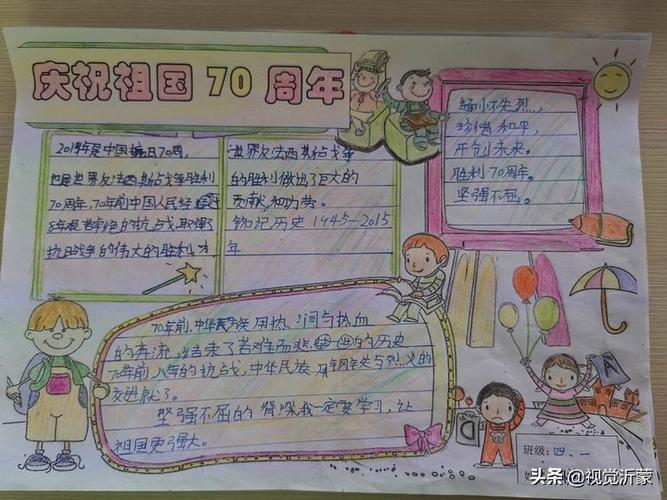 庆祝祖国70周年
2019年是中国抗日70周,
也是世界反法西斯占战争胜利
70周年,70年前中国人民经
8年艰苦卓绝的抗战,取得了
抗日战争的伟大的胜利,才
世界反法西斯占战争
的胜利做出了巨大的
贡献,和功劳。
铭记历史1945—2015
年
缅小不先烈,
珍惜和平,
开创未来。
胜利70周年。
坚强不屈。
70年前,中华民族用热、泪与热血
的奔流,结束了苦难而悲的历史
70年前,八年的抗战,中华民族用钢铁与烈火的
交进就了。
坚强不屈的脊梁我一定要学习,让
祖国更强大。
班级:四、一
头条@视觉沂蒙